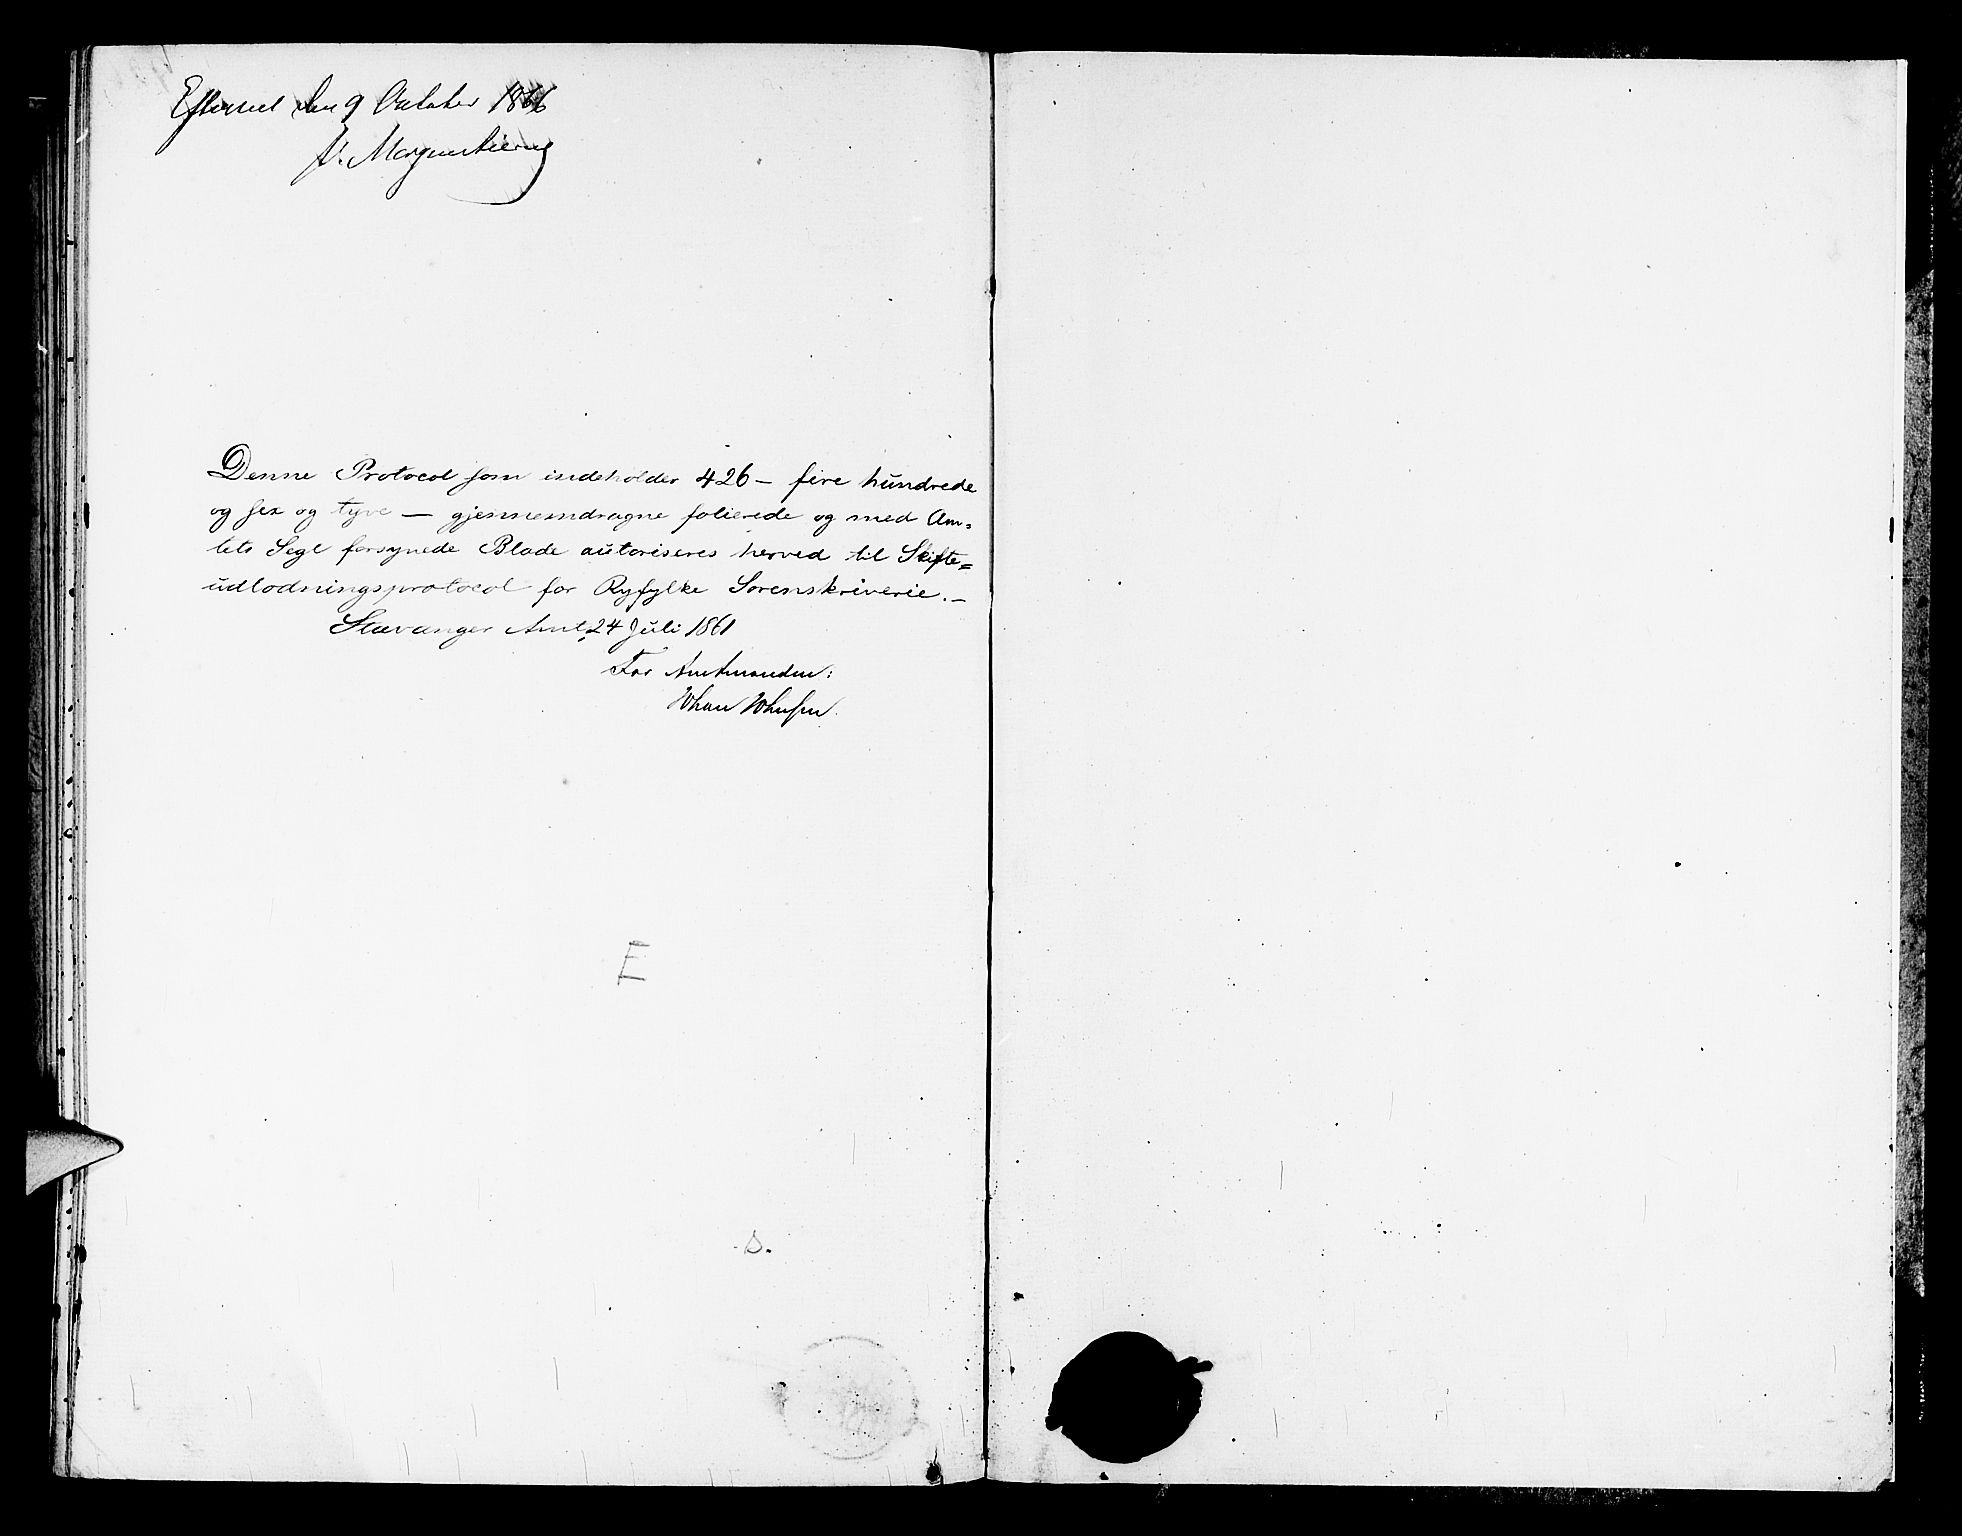 Efterseet den 9 October 1866
Denne Protocol som indeholder 426 - fire hundrede
og sex og tyve — gjennemdragne folierede og med Am=
tets Segl forsynede Blade autoriseres herved til Skifte=
udlodningsprotocol for Ryfylke Sorenskriverie. -
Stavanger Amt, 24 Juli 1861
For Amtmanden:
Johan Johnsen.
E
S.